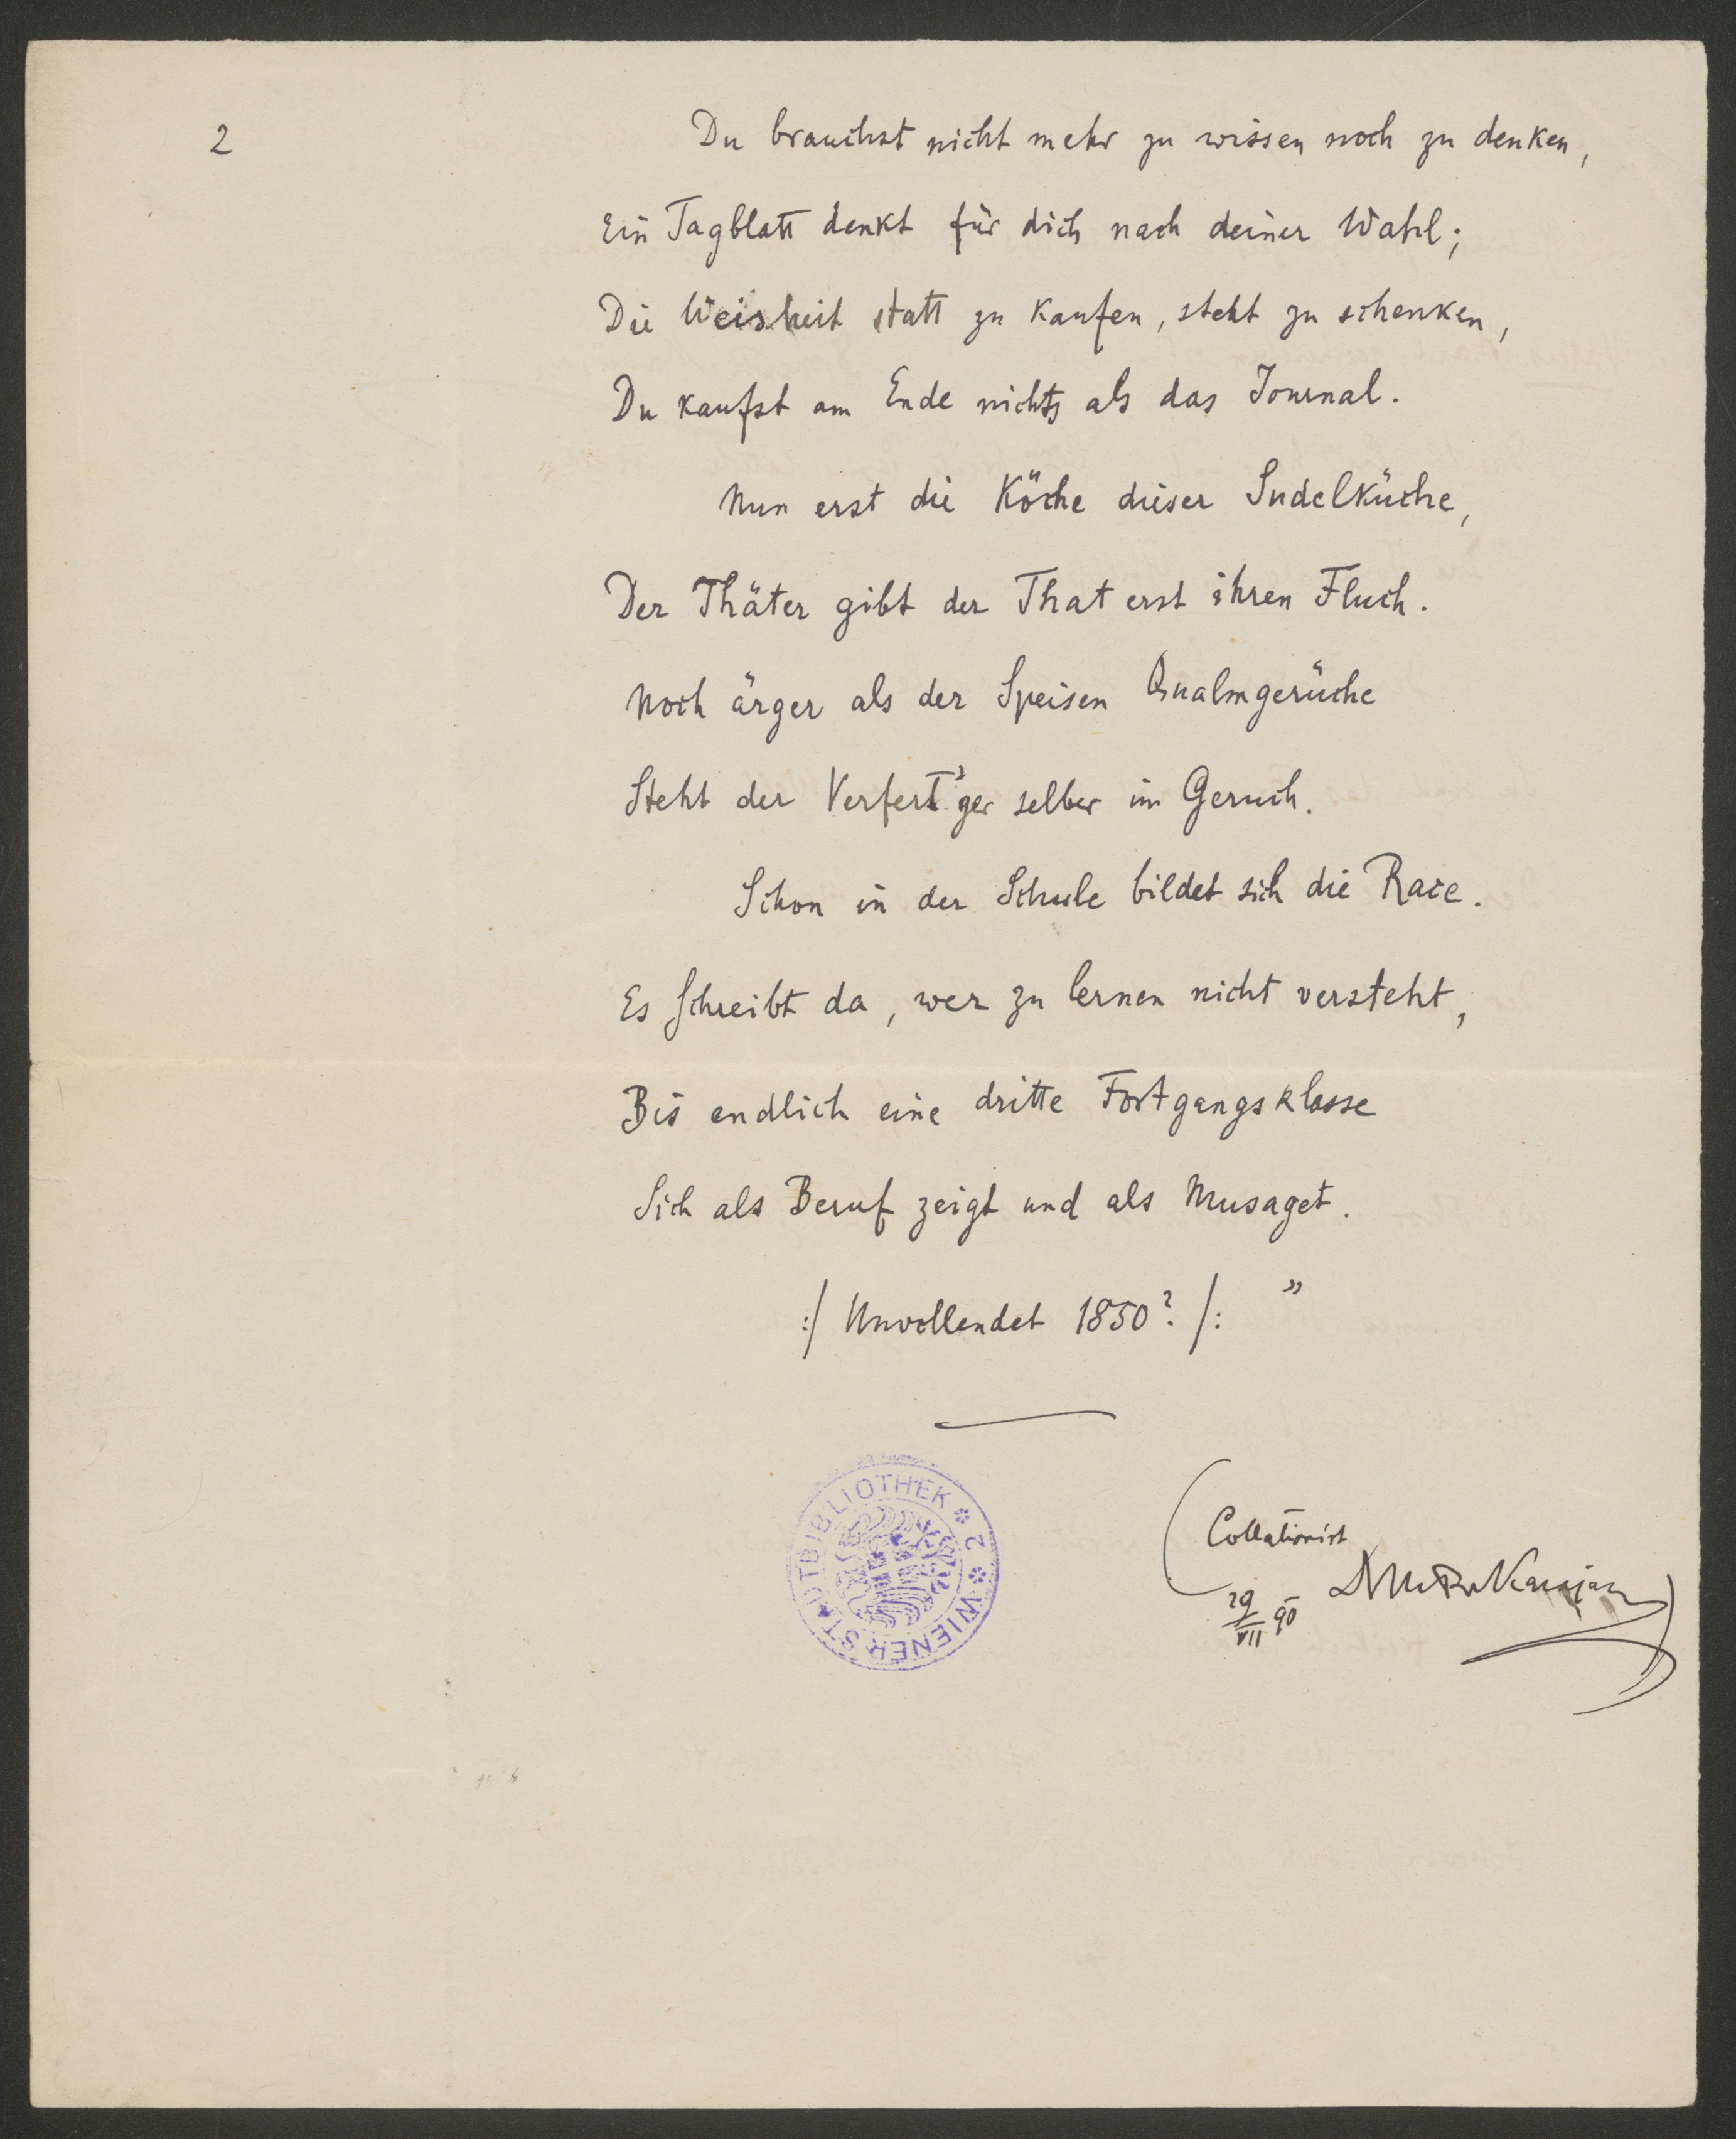 2
Du brauchst nicht mehr zu wissen noch zu denken,
Ein Tagblatt denkt für dich nach deiner Wahl;
Die Weisheit statt zu kaufen, steht zu schenken,
Du kaufst am Ende nichts als das Journal.
Nun erst die Köche dieser Sudelküche,
Der Thäter gibt der That erst ihren Fluch.
Noch ärger als der Speisen Qualmgerüche
Steht der Verfert'ger selber im Geruch.
Schon in der Schule bildet sich die Race.
Es schreibt da, wer zu lernen nicht versteht,
Bis endlich eine dritte Fortgangsklasse
Sich als Beruf zeigt und als Musaget.
:/ Unvollendet 1850? /: "
WIENER STADTBIBLIOTHEK * 2 *
(Collationirt
29/VII 90 Karajan)